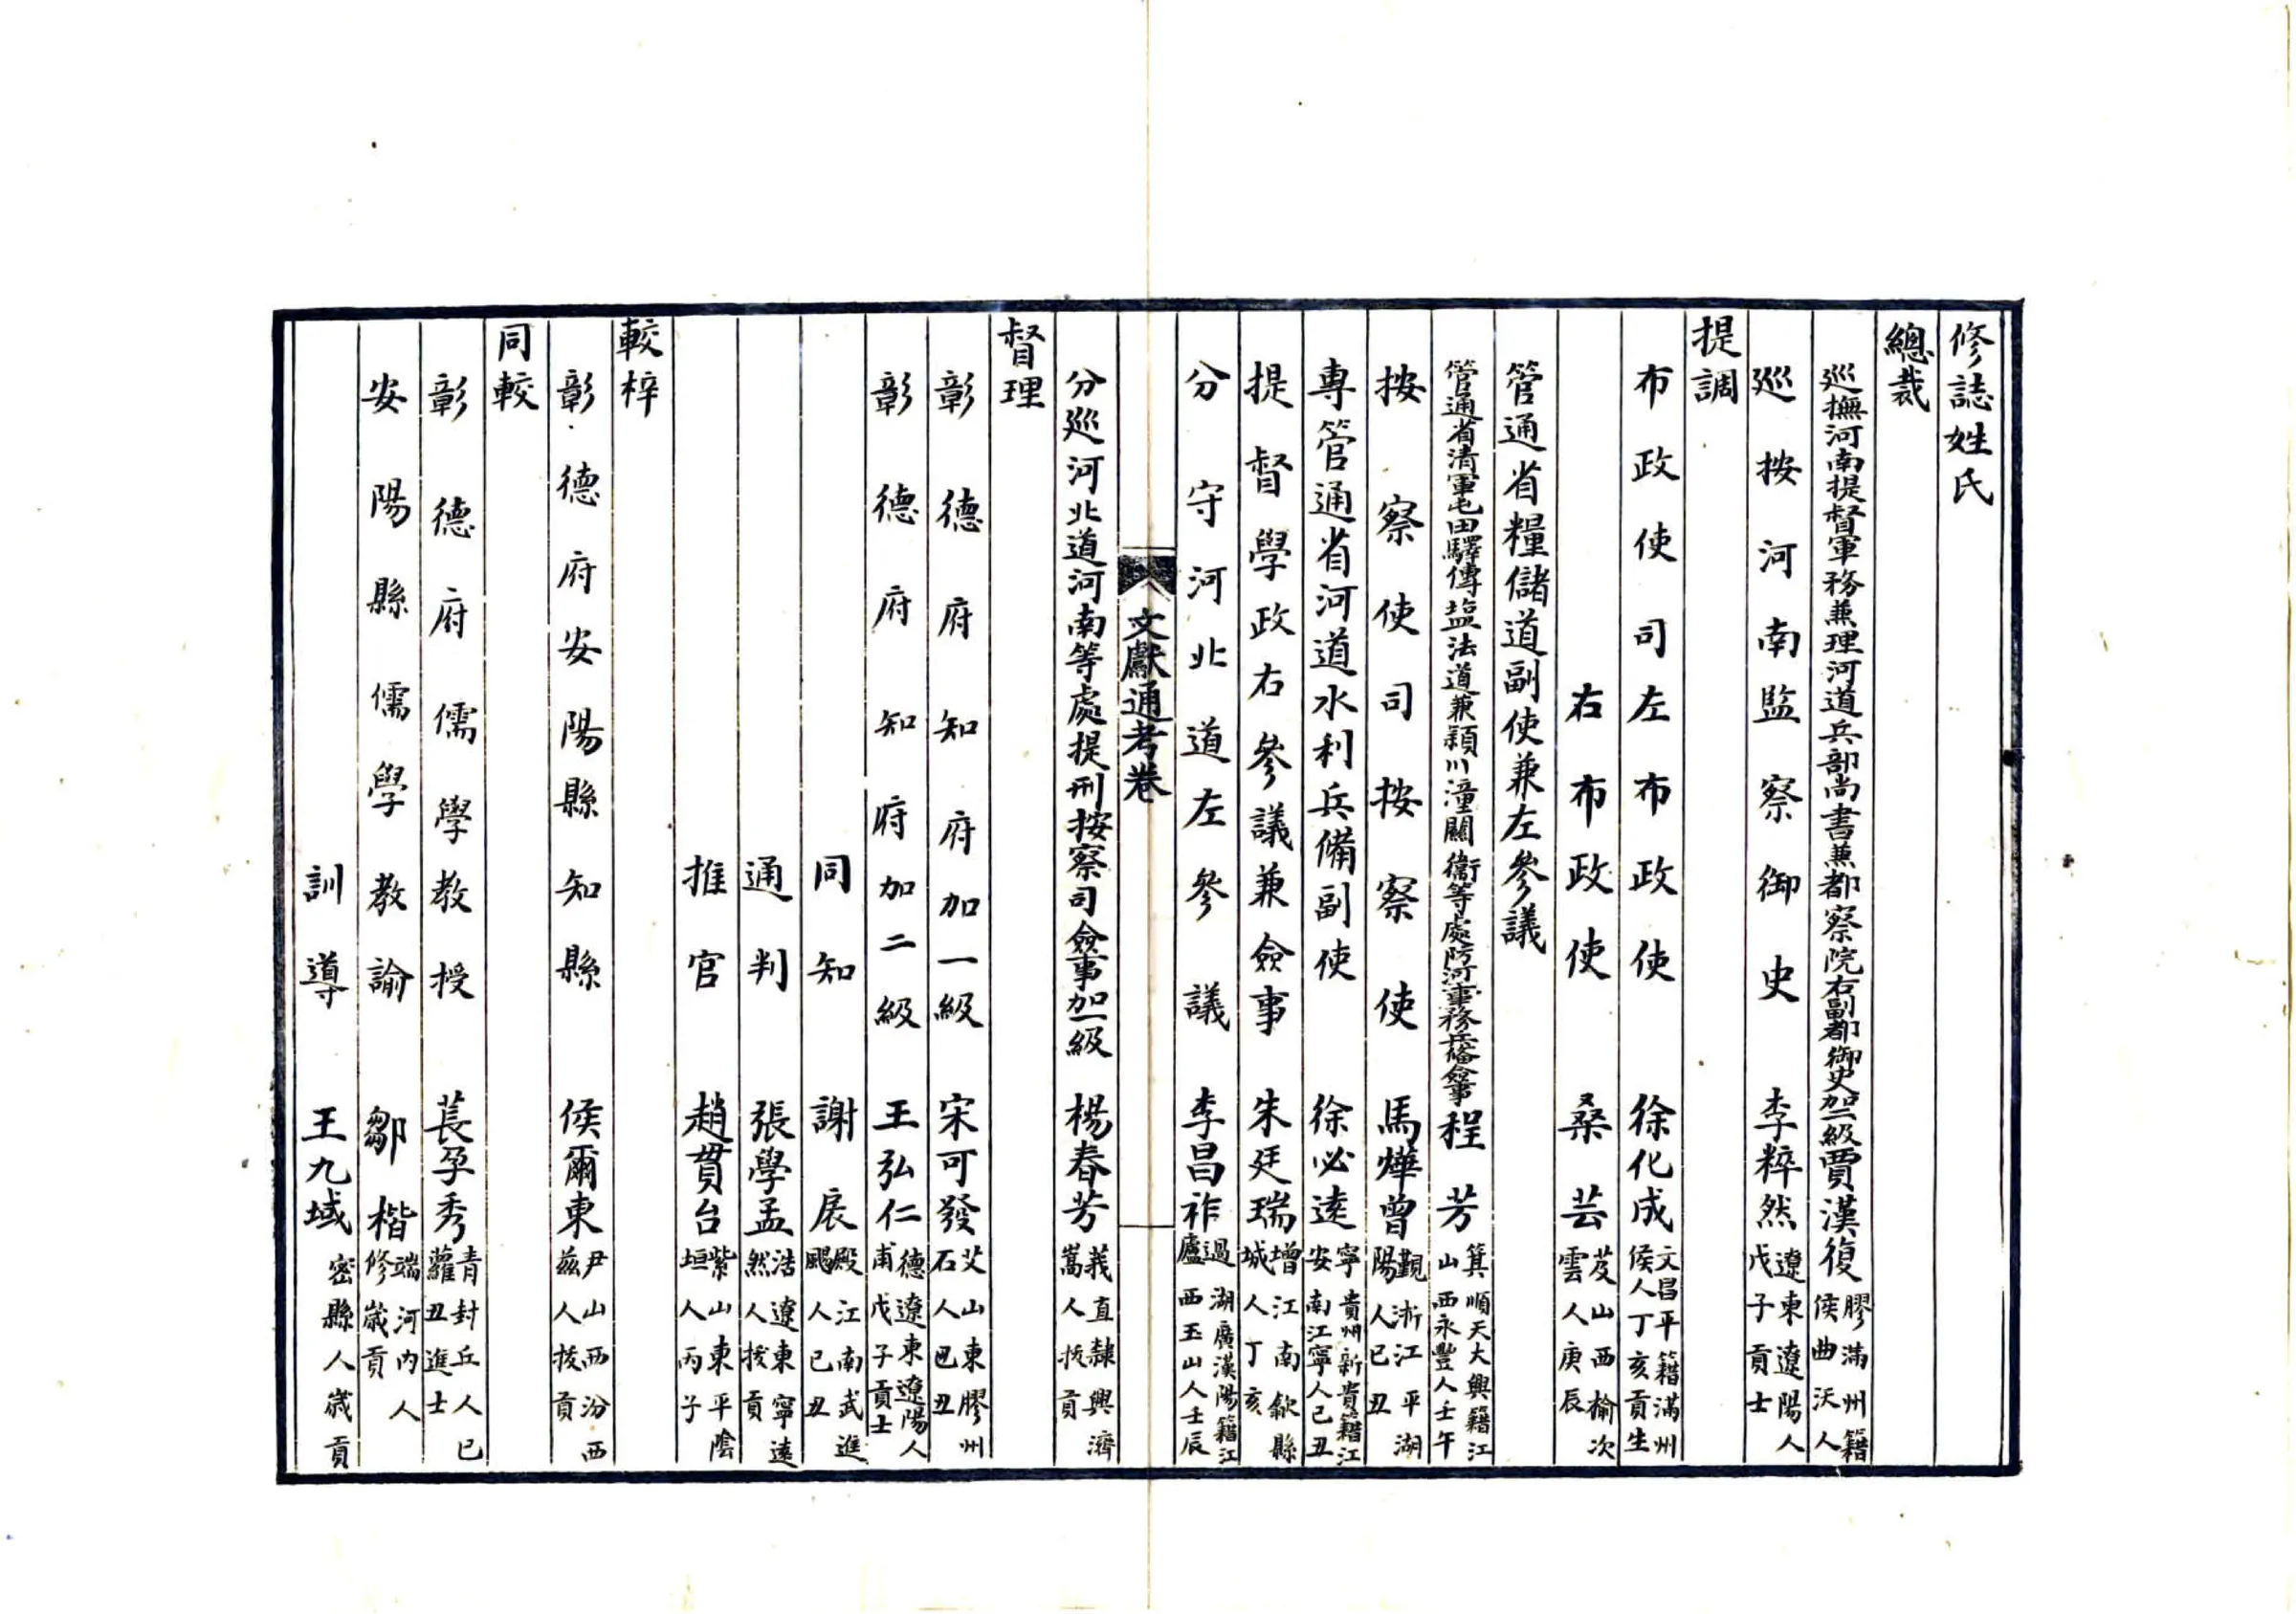 修誌姓氏
總裁
巡撫河南提督軍務兼理河道兵部尚書兼都察院右副都御史加二級賈漢復膠侯滿州籍曲沃人
巡按河南監察御史李粹然遼東遼陽人戊子貢士
提調
布政使司左布政使徐化成文侯昌平籍滿州人丁亥貢生
右布政使桑芸芟雲山西榆次人庚辰
管通省糧儲道副使兼左參議
管通省清軍屯田驛傳塩法道兼潁川潼關衞等處防河事務兵備僉事程芳箕山順天大興籍江西永豐人壬午
按察使司按察使馬燁曾覲陽浙江平湖人己丑
專管通省河道水利兵備副使徐必遠寧安貴州新貴籍江南江寧人己丑
提督學政右參議兼僉事朱廷瑞增城江南歙縣人丁亥
分守河北道左參議李昌祚過廬湖廣漢陽籍江西玉山人壬辰
文獻通考卷
分巡河北道河南等處提刑按察司僉事加一級楊春芳義嵩直隸興濟人拔貢
督理
彰德府知府加一級宋可發艾石山東膠州人己丑
彰德府知府加二級王弘仁德甫遼東遼陽人戊子貢士
同知謝扆殿颺江南武進人己丑
通判張學孟浩然遼東寧遠人拔貢
推官趙貫台紫垣山東平陰人丙子
較梓
彰德府安陽縣知縣侯爾東尹茲山西汾西人拔貢
同較
彰德府儒學教授萇孕秀青蘿封丘人己丑進士
安陽縣儒學教諭鄒楷端修河內人歲貢
訓導王九域密縣人歲貢